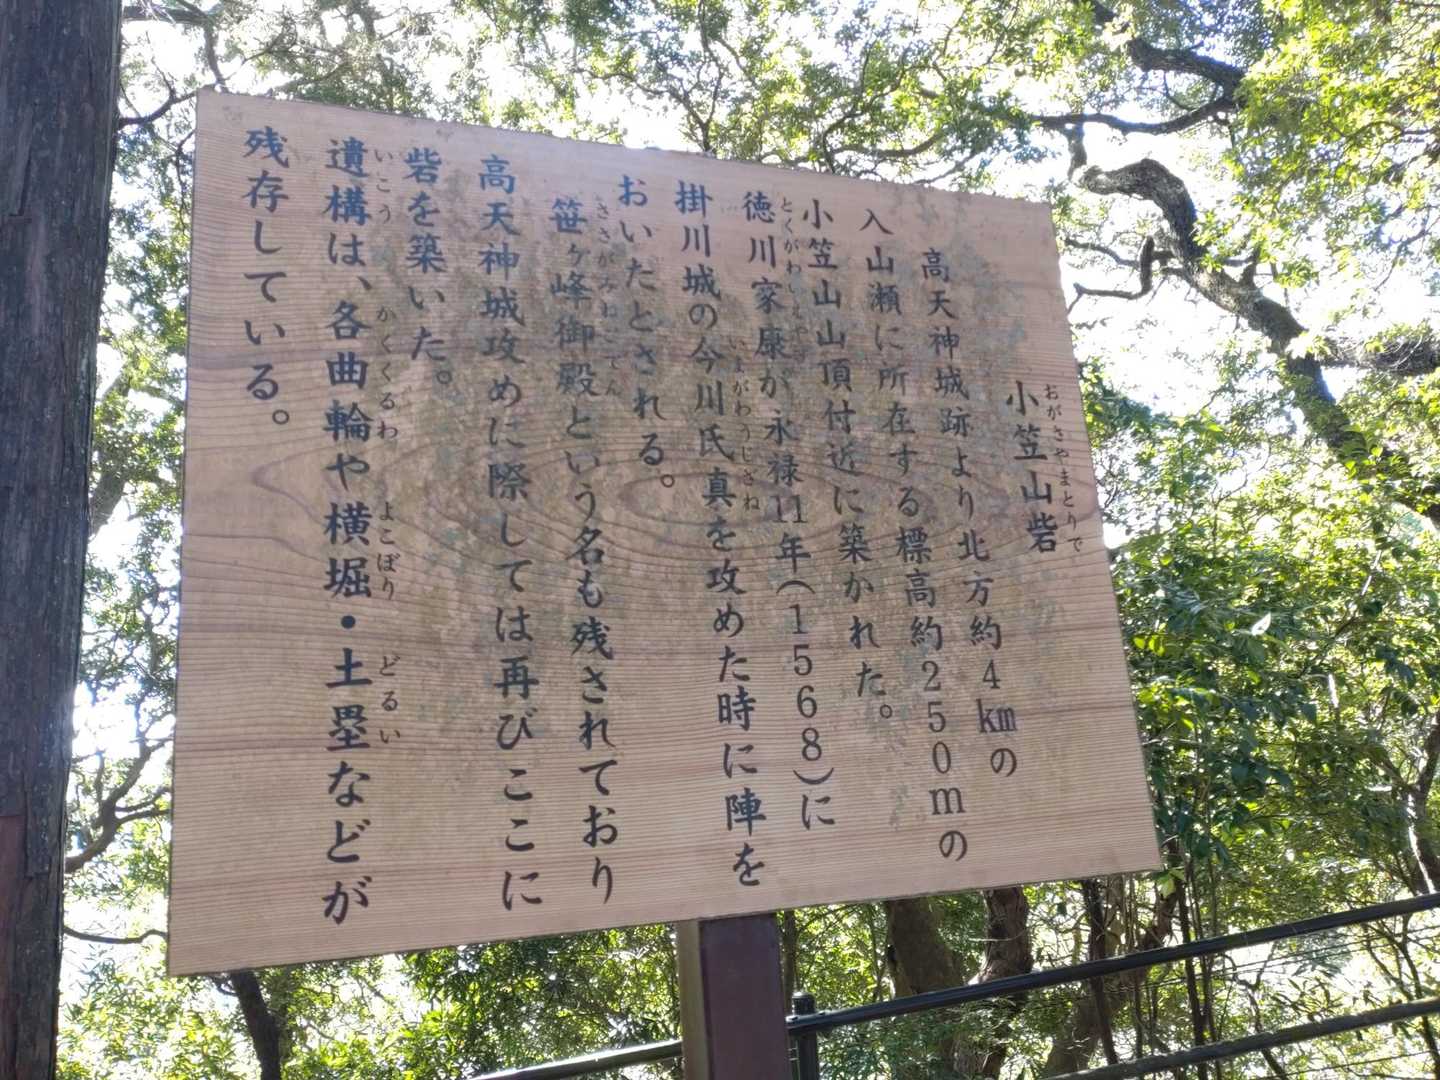 小笠山砦
おがさやまとりで
高天神城跡より北方約4㎞の
入山瀬に所在する標高約250mの
小笠山山頂付近に築かれた。
徳川家康が永禄11年(1568)に
とくがわいえやす
掛川城の今川氏真を攻めた時に陣を
いまがわうじざね
おいたとされる。
笹ヶ峰御殿という名も残されており
ささがみねごてん
高天神城攻めに際しては再びここに
砦を築いた。
遺構は、各曲輪や横堀・土塁などが
いこう かくくるわ よこぼり どるい
残存している。